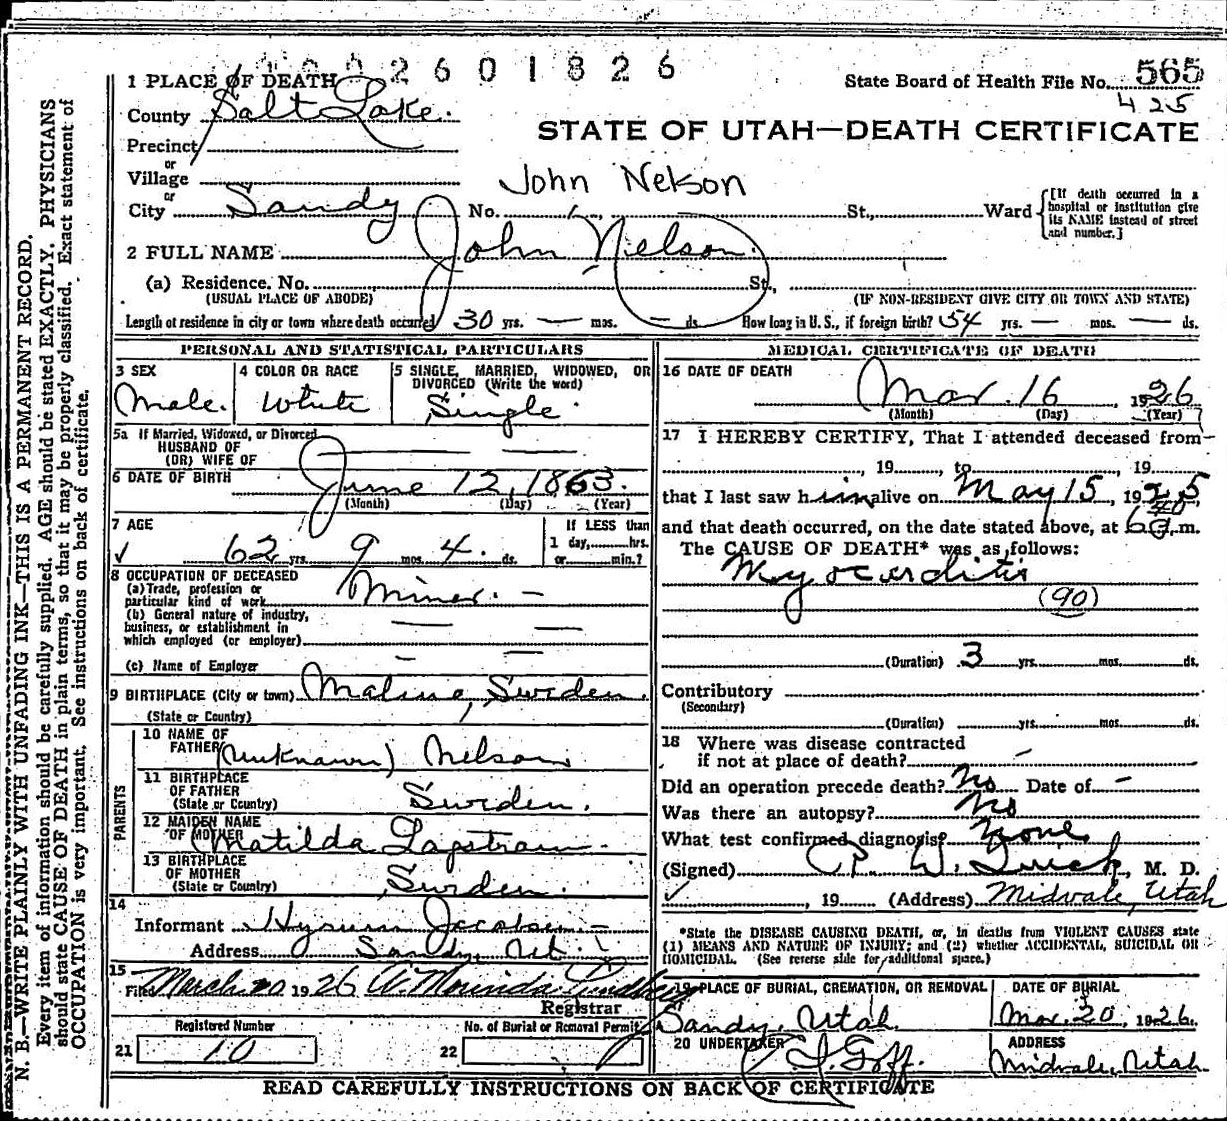 2601826
1 PLACE OF DEATH
State Board of Health File No. 565
425
County Salt Lake.
STATE OF UTAH—DEATH CERTIFICATE
Precinct
or
Village
John Nelson
or
City Sandy No. St., Ward
[If death occurred in a hospital or institution give its NAME instead of street and number.]
2 FULL NAME John Nelson.
(a) Residence. No. St.,
(USUAL PLACE OF ABODE) (IF NON-RESIDENT GIVE CITY OR TOWN AND STATE)
Length of residence in city or town where death occurred 30 yrs. — mos. — ds. How long in U. S., if foreign birth? 54 yrs. — mos. — ds.
PERSONAL AND STATISTICAL PARTICULARS
3 SEX
Male.
4 COLOR OR RACE
White
5 SINGLE, MARRIED, WIDOWED, OR DIVORCED (Write the word)
Single.
5a If Married, Widowed, or Divorced
HUSBAND OF
(OR) WIFE OF
6 DATE OF BIRTH June 12, 1863.
(Month) (Day) (Year)
7 AGE
62 yrs. 9 mos. 4. ds.
If LESS than
1 day,........hrs.
or........min.?
8 OCCUPATION OF DECEASED
(a) Trade, profession or
particular kind of work Miner. —
(b) General nature of industry,
business, or establishment in
which employed (or employer)
(c) Name of Employer
9 BIRTHPLACE (City or town) Malino, Sweden.
(State or Country)
PARENTS
10 NAME OF
FATHER (Unknown) Nelson
11 BIRTHPLACE
OF FATHER
(State or Country) Sweden.
12 MAIDEN NAME
OF MOTHER Matilda Lapstrom
13 BIRTHPLACE
OF MOTHER
(State or Country) Sweden.
14
Informant Hyrum Jacobsen
Address Sandy, Ut.
15
Filed March 20 1926 A. Morinda Lindberg
Registrar
Registered Number
21 10
No. of Burial or Removal Permit
22
MEDICAL CERTIFICATE OF DEATH
16 DATE OF DEATH
Mar. 16, 1926
(Month) (Day) (Year)
17 I HEREBY CERTIFY, That I attended deceased from
, 19 , to , 19
that I last saw him alive on May 15, 1925
and that death occurred, on the date stated above, at m.
The CAUSE OF DEATH* was as follows:
Myocarditis
(90)
(Duration) 3 yrs. mos. ds.
Contributory
(Secondary)
(Duration) yrs. mos. ds.
18 Where was disease contracted
if not at place of death? —
Did an operation precede death? No Date of —
Was there an autopsy? No
What test confirmed diagnosis? None
(Signed) , M. D.
, 19 (Address) Midvale, Utah
*State the DISEASE CAUSING DEATH, or, in deaths from VIOLENT CAUSES state
(1) MEANS AND NATURE OF INJURY; and (2) whether ACCIDENTAL, SUICIDAL OR
HOMICIDAL. (See reverse side for additional space.)
19 PLACE OF BURIAL, CREMATION, OR REMOVAL
Sandy, Utah.
DATE OF BURIAL
Mar. 20, 1926.
20 UNDERTAKER
Goff.
ADDRESS
Midvale, Utah.
READ CAREFULLY INSTRUCTIONS ON BACK OF CERTIFICATE
N. B.—WRITE PLAINLY WITH UNFADING INK—THIS IS A PERMANENT RECORD.
Every item of information should be carefully supplied. AGE should be stated EXACTLY. PHYSICIANS
should state CAUSE OF DEATH in plain terms, so that it may be properly classified. Exact statement of
OCCUPATION is very important. See instructions on back of certificate.